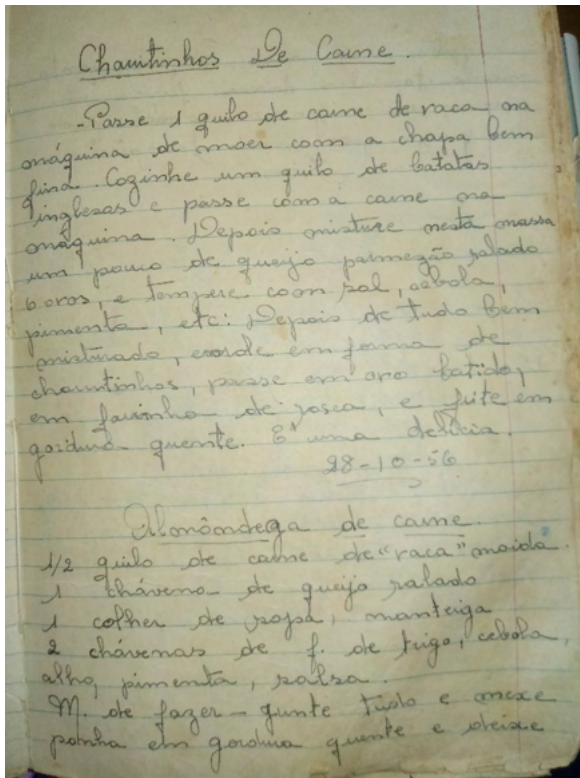 Charutinhos De Carne.
-Passe 1 quilo de carne de vaca na
máquina de moer com a chapa bem
fina. Cozinhe um quilo de batatas
inglesas e passe com a carne na
máquina. Depois misture nesta massa
um pouco de queijo parmezão ralado
6 ovos, e tempere com sal, cebola,
pimenta, etc: Depois de tudo bem
misturado, enrole em forma de
charutinhos, passe em ovo batido,
em farinha de rosca, e frite em
gordura quente. E' uma delicia.
28-10-56
Almôndega de carne.
1/2 quilo de carne de "vaca" moida.
1 chávena de queijo ralado
1 colher de sopa, manteiga
2 chávenas de f. de trigo, cebola,
alho, pimenta, salsa.
M. de fazer - junte tudo e mexe
ponha em gordura quente e deixe